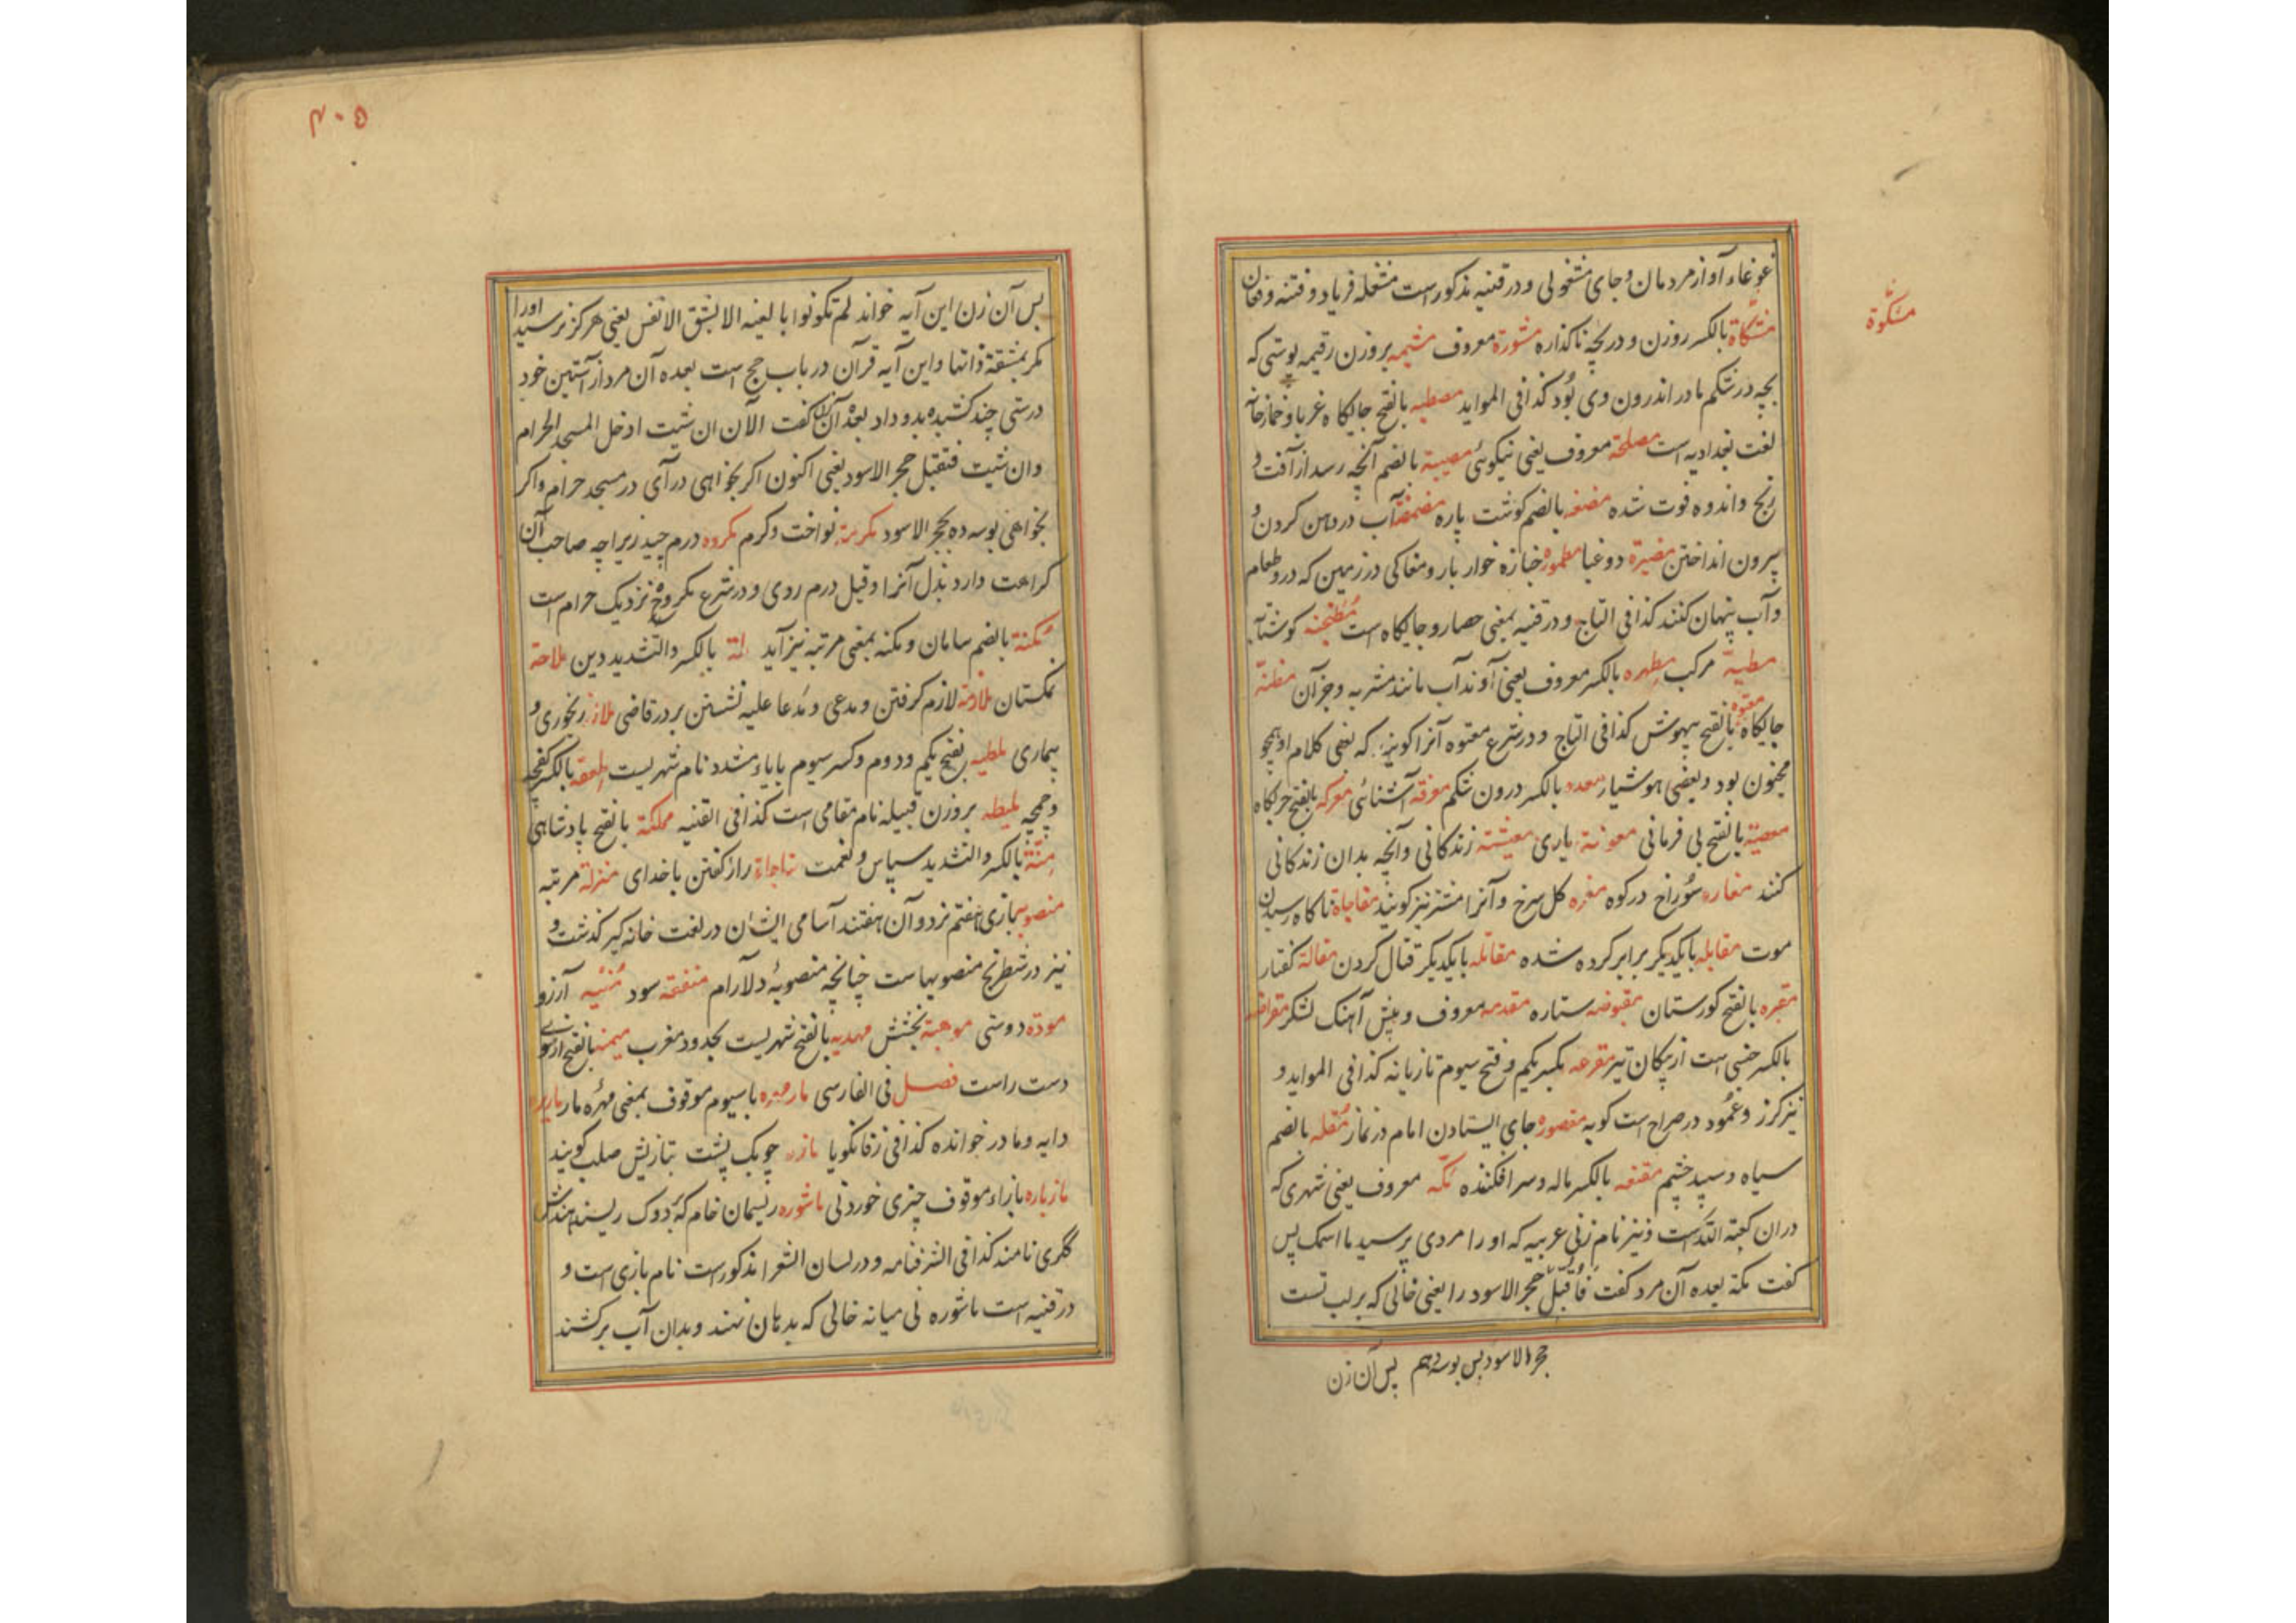 غوغاء آواز مردمان و جای مشغولی و در قنیه مذکور است مشغله فریاد و فتنه و فغان
مشکاة بالکسر روزن و دریچه ناکذاره مشورة معروف مشیمه بروزن رقیمه پوستی که
مشکوة
بچه در شکم مادر اندرون وی بُود کذا فی المواید مصطبه بالفتح جایکاه غربا و خمارخانه
لغت بغدادیه است مصلحة معروف یعنی نیکوئی مصیبة بالضم آنچه رسد از آفت و
رنج و اندوه فوت شده مضغه بالضم کوشت پاره مضمضة آب در دهن کردن و
بیرون انداختن مضیرة دوغبا مطموره خبازه خوار بار و مغاکی در زمین که درو طعام
و آب پنهان کنند کذا فی التاج و در قنیه بمعنی حصار و جایکاه است مُطنجنه کوشتابه
مطیة مرکب مطهره بالکسر معروف یعنی آوند آب مانند مشربه و جز آن مظنة
جایکاه معتوه بالفتح بیهوش کذا فی التاج و در شرع معتوه آنرا کویند که بعضی کلام او همچو
مجنون بود و بعضی هوشیار معده بالکسر درون شکم معرفة آشنائی معرکه بالفتح حربکاه
معصیة بالفتح بی فرمانی معونة یاری معیشة زندکانی و آنچه بدان زندکانی
کنند مغاره سُوراخ در کوه مغره کل سرخ و آنرا مشتر نیز کویند مفاجاة ناکاه رسیدن
موت مقابله بایکدیکر برابر کرده شده مقاتله بایکدیکر قتال کردن مقالة کفتار
مقبره بالفتح کورستان مقبوضه ستاره مقدمه معروف و پیش آهنک لشکر مقراضه
بالکسر جنسی است از پیکان تیر مقرعه بکسر یکم و فتح سیوم تازیانه کذا فی المواید و
نیز کرز و عمُود در صراح است کوبه مقصوره جای ایستادن امام در نماز مُقله بالضم
سیاه و سپید چشم مقنعه بالکسر ماله و سر افکنده مکّه معروف یعنی شهری که
دران کعبة الله است و نیز نام زنی عربیه که او را مردی پرسید ما اسمک پس
کفت مکة بعده آن مرد کفت فأُقبّل حجر الاسود را یعنی خالی که بر لب تست
حجر الاسود پس بوسه دهم پس آن زن
۴۰۵
پس آن زن این آیه خواند لم تکونوا بالغیه الا بشق الانفس یعنی هرکز نرسید او را
مکر بمشقة ذاتها و این آیه قرآن در باب حج است بعده آن مرد از آستین خود
درستی چند کشیده بدو داد بعده آن زن کفت الآن ان شئت ادخل المسجد الحرام
و ان شئت فتقبل حجر الاسود یعنی اکنون اکر بخواهی درآی در مسجد حرام و اکر
بخواهی بوسه ده بحجر الاسود مکرمة نواخت و کرم مکروه درم چیز زیراچه صاحب آن
کراهت دارد بذل آنرا و قیل درم روی و در شرع مکروه نزدیک حرام است
مُکنة بالضم سامان و مکنه بمعنی مرتبه نیز آید ملة بالکسر والتشدید دین ملاحة
نمکستان ملازمة لازم کرفتن و مدعی و مُدعا علیه نشستن بر در قاضی ملازه رنجوری و
بیماری ملطیه بفتح یکم و دوم و کسر سیوم با یاء مشدد نام شهریست ملعقه بالکسر کفچه
و چمچه ملیطه بروزن قبیله نام مقامی است کذا فی القنیه مملکة بالفتح پادشاهی
منّة بالکسر والتشدید سپاس و نعمت مناجاة راز کفتن با خدای منزلة مرتبه
منصوبه بازی هفتم نرد و آن هفتند آسامی ایشان در لغت خانه کیر کذشت و
نیز در شطرنج منصوبهاست چنانچه منصوبهٔ دلآرام منفعة سود مُنیه آرزو
مودّه دوستی موهبة بخشش مهدیه بالفتح شهریست بحدود مغرب میمنه بالفتح از سوی
دست راست فصل فی الفارسی مارمهره با سیوم موقوف بمعنی مُهره مار
دایه و مادر خوانده کذا فی زفانکویا مازه چوبک پشت بتازیش صلب کویند
مازباره بازاء موقوف چیزی خوردنی ماشوره ریسمان خام که بردوک ریسند هندش
ککری نامند کذا فی الشرفنامه و در لسان الشعرا مذکور است نام بازی است و
در قنیه است ماشوره نی میانه خالی که بدهان نهند و بدان آب برکشند